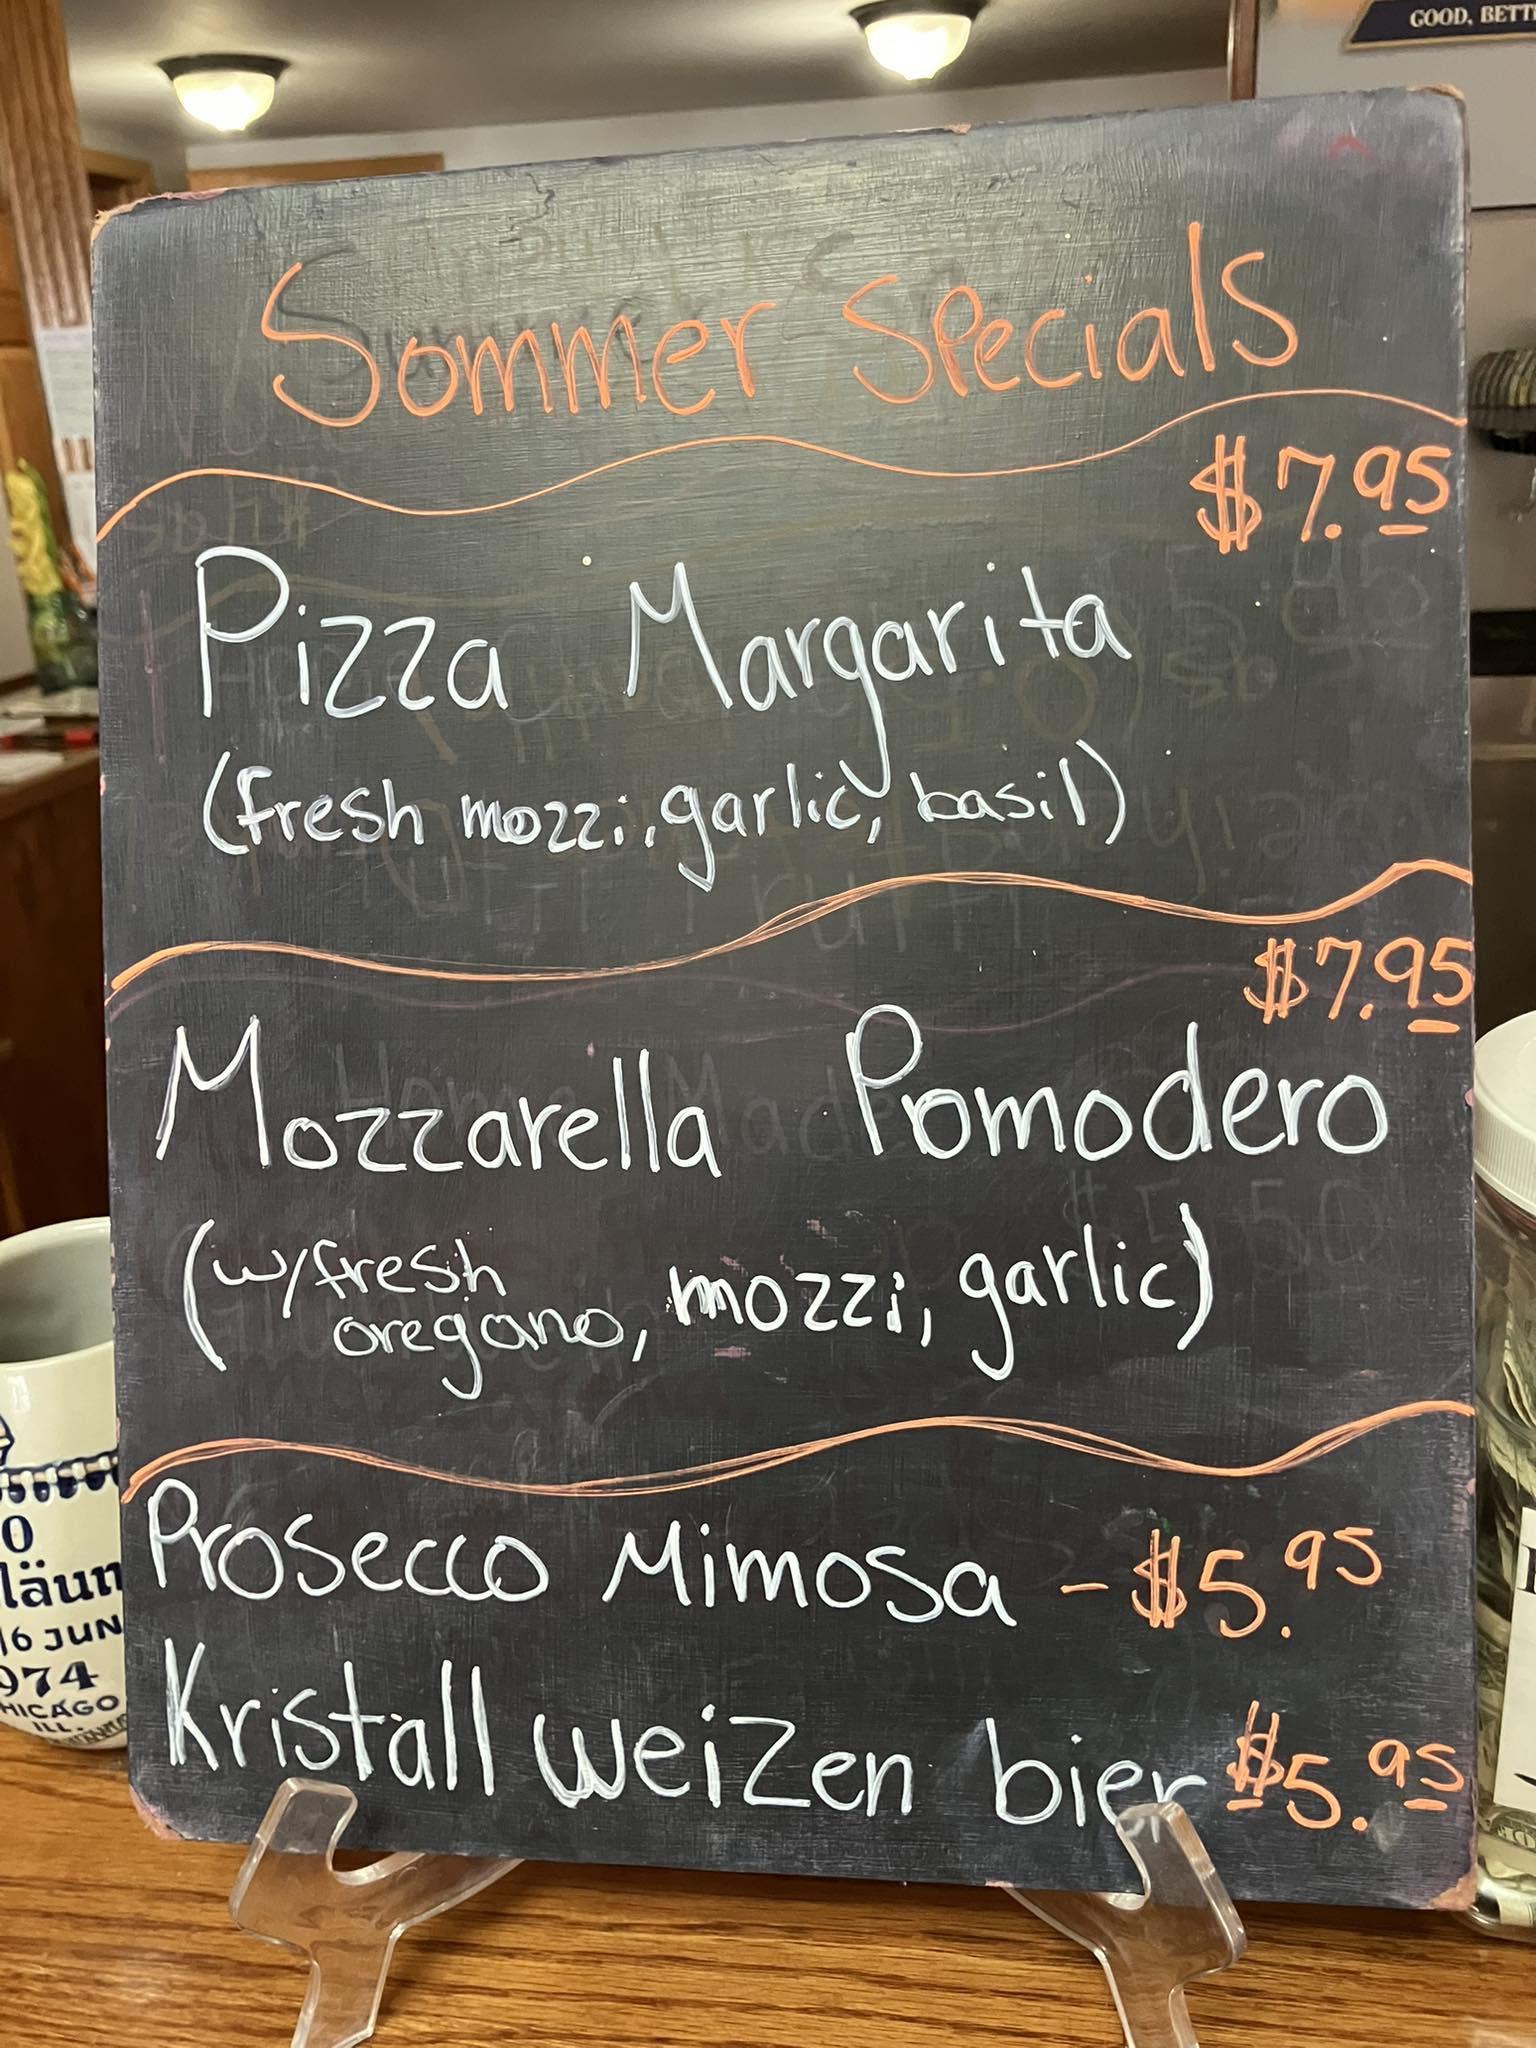 GOOD, BETT
Sommer Specials
$7.95
Pizza Margarita
(fresh mozzi, garlic, basil)
$7.95
Mozzarella Pomodero
(w/fresh
oregano, mozzi, garlic)
Prosecco Mimosa - $5.95
Kristall weizen bier $5.95
0
läun
16 JUN
974
HICAGO
ILL.